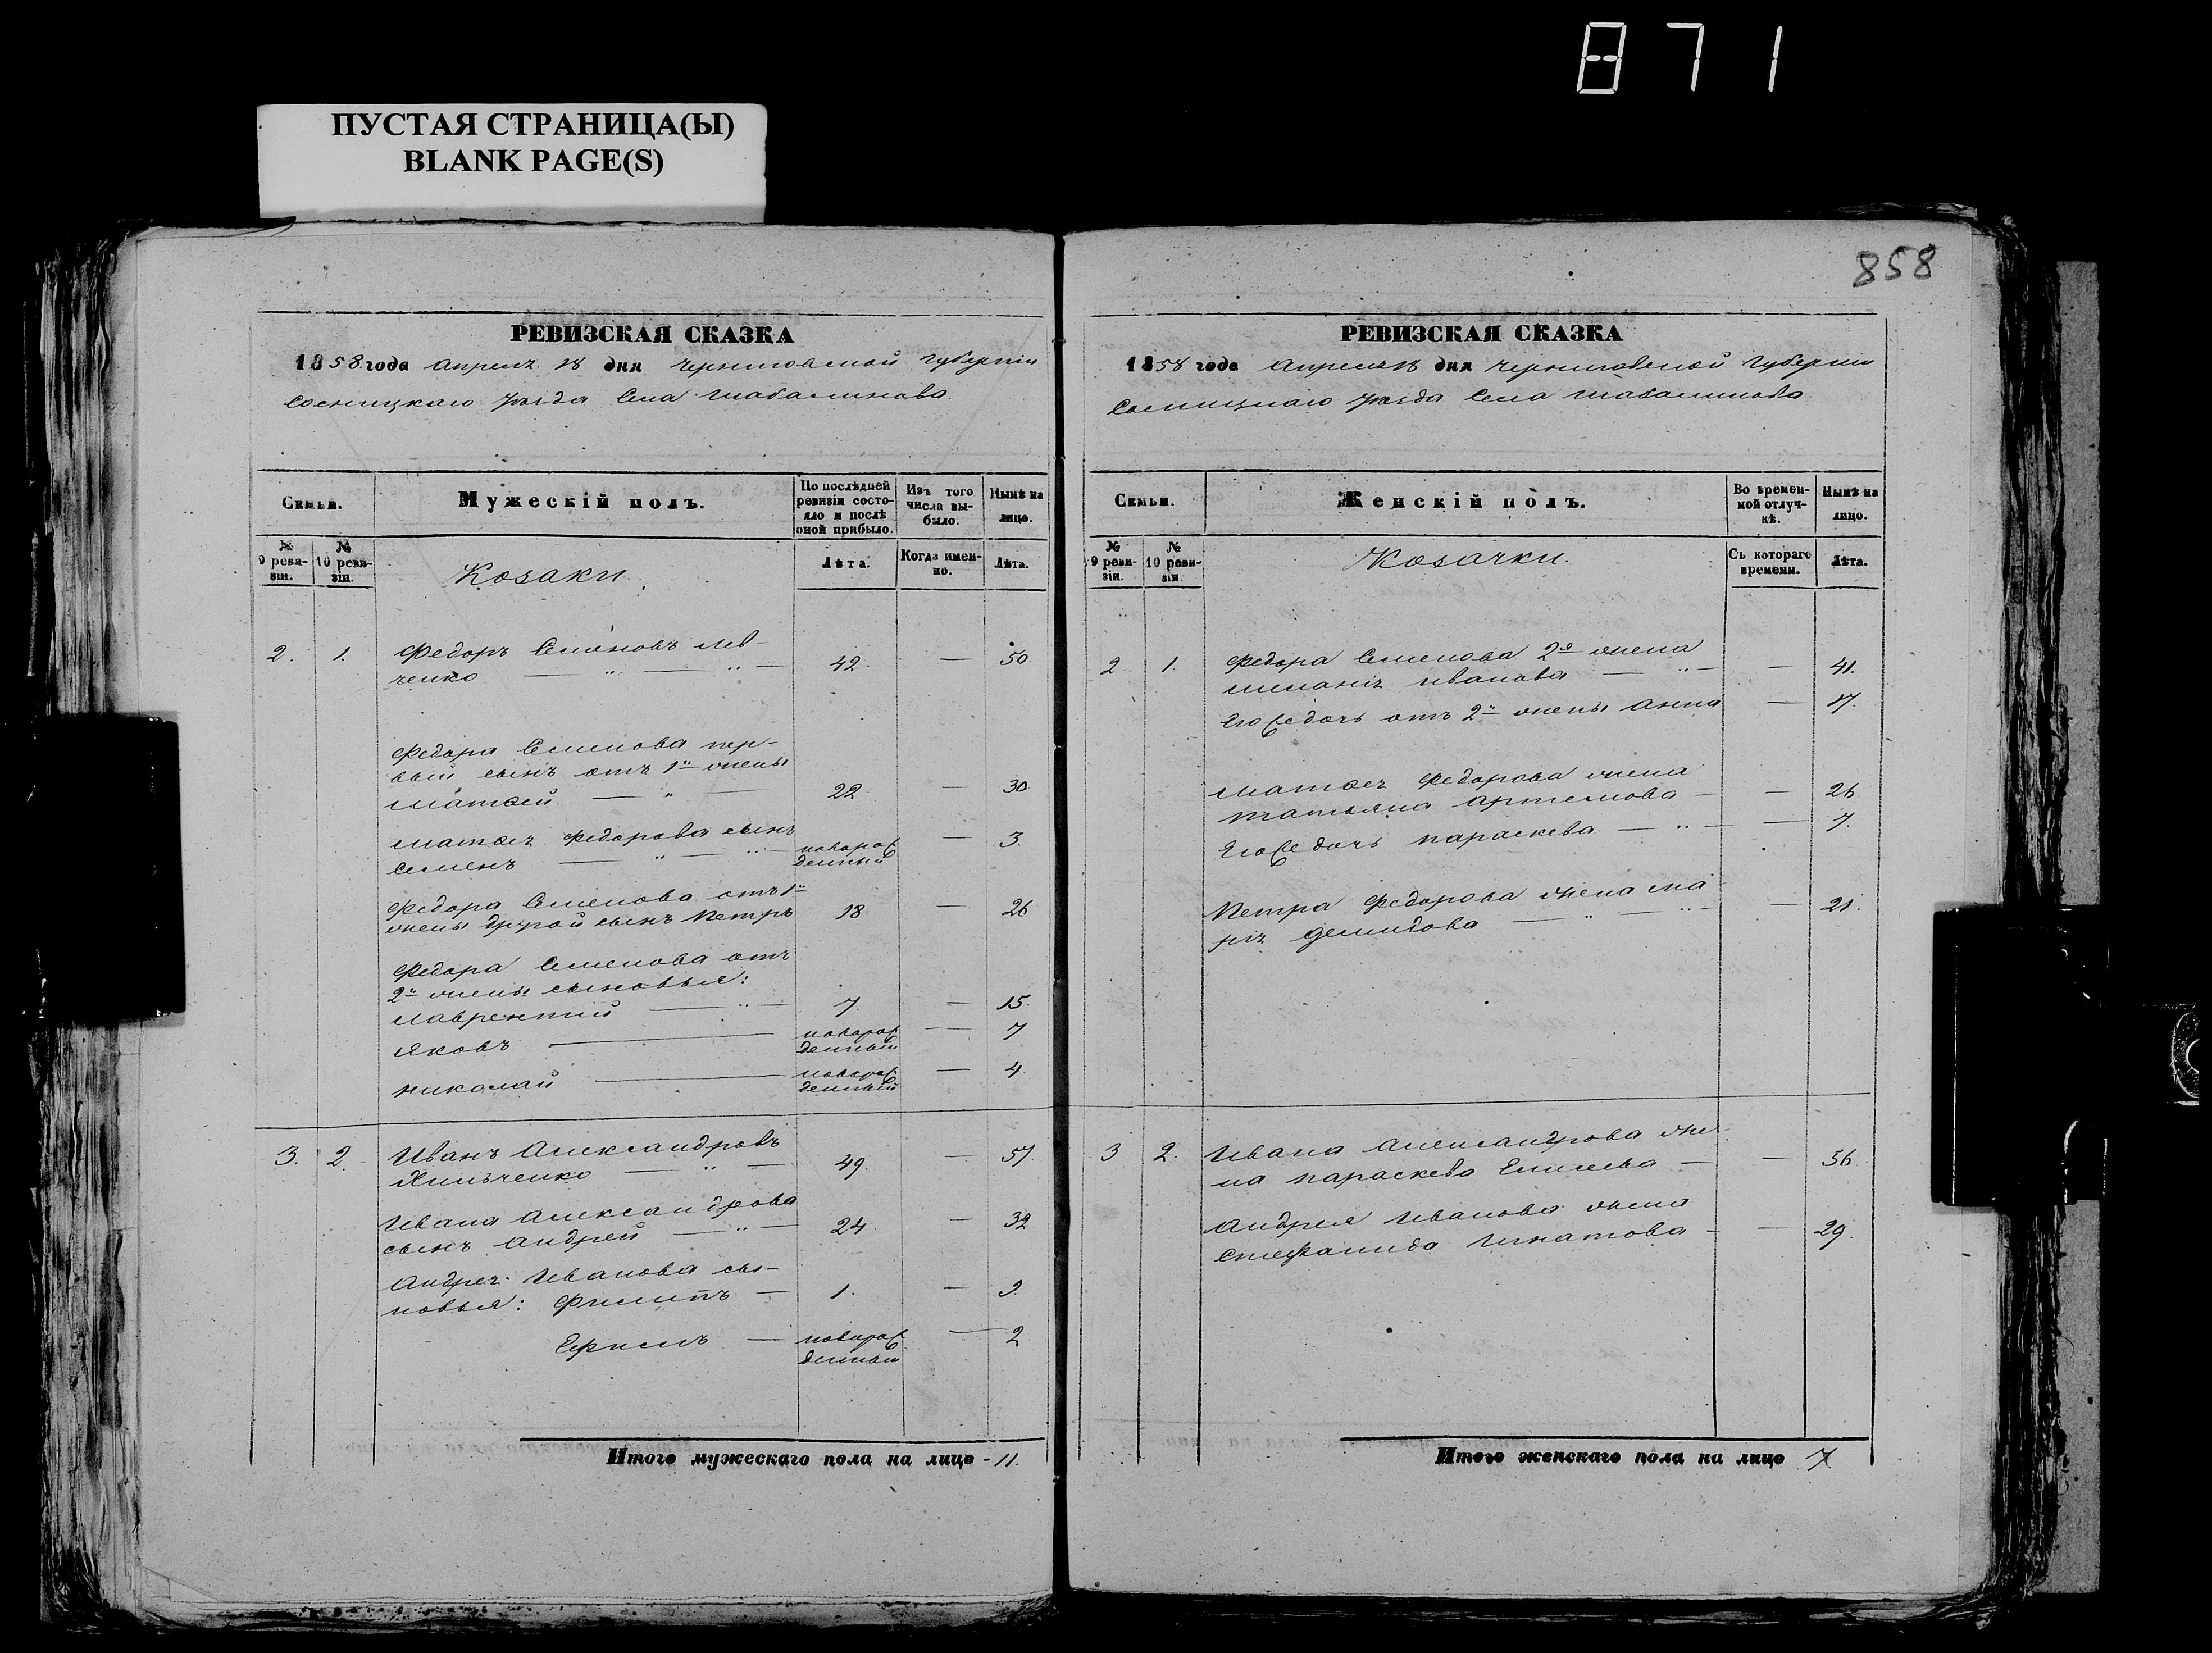 871
ПУСТАЯ СТРАНИЦА(Ы)
BLANK PAGE(S)
РЕВИЗСКАЯ СКАЗКА
1858 года Апреля 18 дня Черниговской Губернiи
Сосницкаго уѣзда Села Шабалинова
Семьи.
Мужескiй полъ.
По послѣдней ревизiи состояло и послѣ оной прибыло.
Изъ того числа выбыло.
Нынѣ на лицо.
№ 9 ревизiи.
№ 10 ревизiи.
Козаки.
Лѣта.
Когда именно.
Лѣта.
2. 1. Федоръ Семеновъ Лев-
ченко — " — " — 42 — 50
Федора Семенова пер-
вый сынъ отъ 1й жены
Матвей — " — 22 — 30
Матвея Федорова сынъ
Семенъ — " — " — новорожденный — 3.
Федора Семенова отъ 1й
жены другой сынъ Петръ 18 — 26
Федора Семенова отъ
2й жены сыновья:
Лаврентiй — " — 7. — 15.
Яковъ — новорожденный — 7
Николай — новорожденный — 4
3. 2. Иванъ Александровъ
— " — 49. — 57
Ивана Александрова
сынъ Андрей — " — 24. — 32
Андрея Иванова сы-
новья: Филипъ — 1. — 9.
— новорожденный — 2
Итого мужескаго пола на лицо - 11.
858
РЕВИЗСКАЯ СКАЗКА
1858 года Апреля 18 дня Черниговской Губернiи
Сосницкаго уѣзда Села Шабалинова
Семьи.
Женскiй полъ.
Во временной отлучкѣ.
Нынѣ на лицо.
№ 9 ревизiи.
№ 10 ревизiи.
Козачки.
Съ котораго времени.
Лѣта.
2 1. Федора Семенова 2я жена
Меланiя Иванова — " — — 41.
Его дочь отъ 2й жены Анна —
Матвея Федорова жена
Татьяна Артемова — — 26
Его дочь Параскева — " — — 7.
Петра Федорова жена Ма
рiя Демидова — " — " — — 21.
3 2. Ивана Александрова же-
на Параскева Елисеева — — 56
Андрея Иванова жена
Стефанида Игнатова — — 29.
Итого женскаго пола на лицо 7